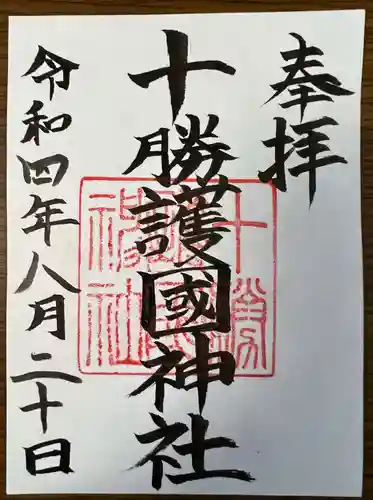 奉拝
十勝護國神社
十勝護國神社
令和四年八月二十日